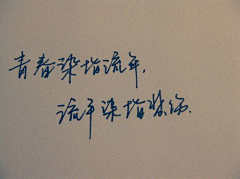 青春染指流年,
流年染指